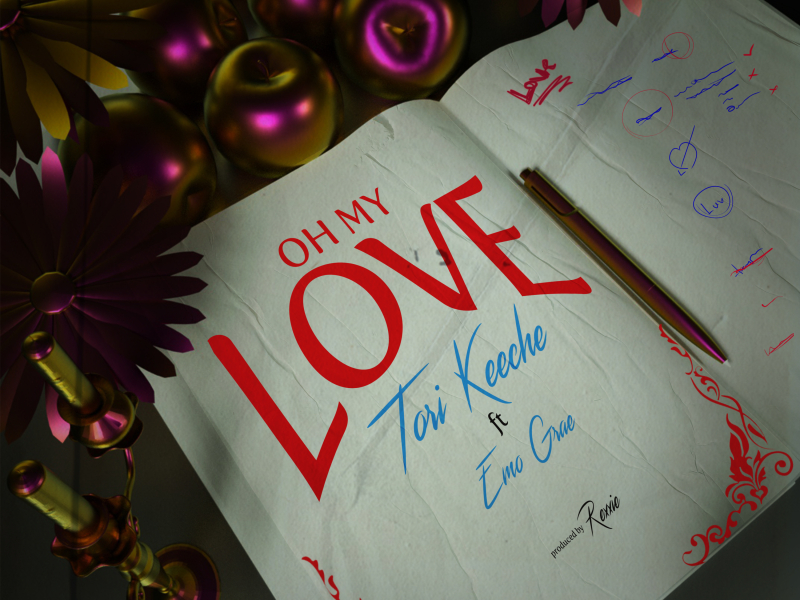 OH MY
LOVE
Tori Keeche
ft
Emo Grae
produced by Roxxie
Love
Luv